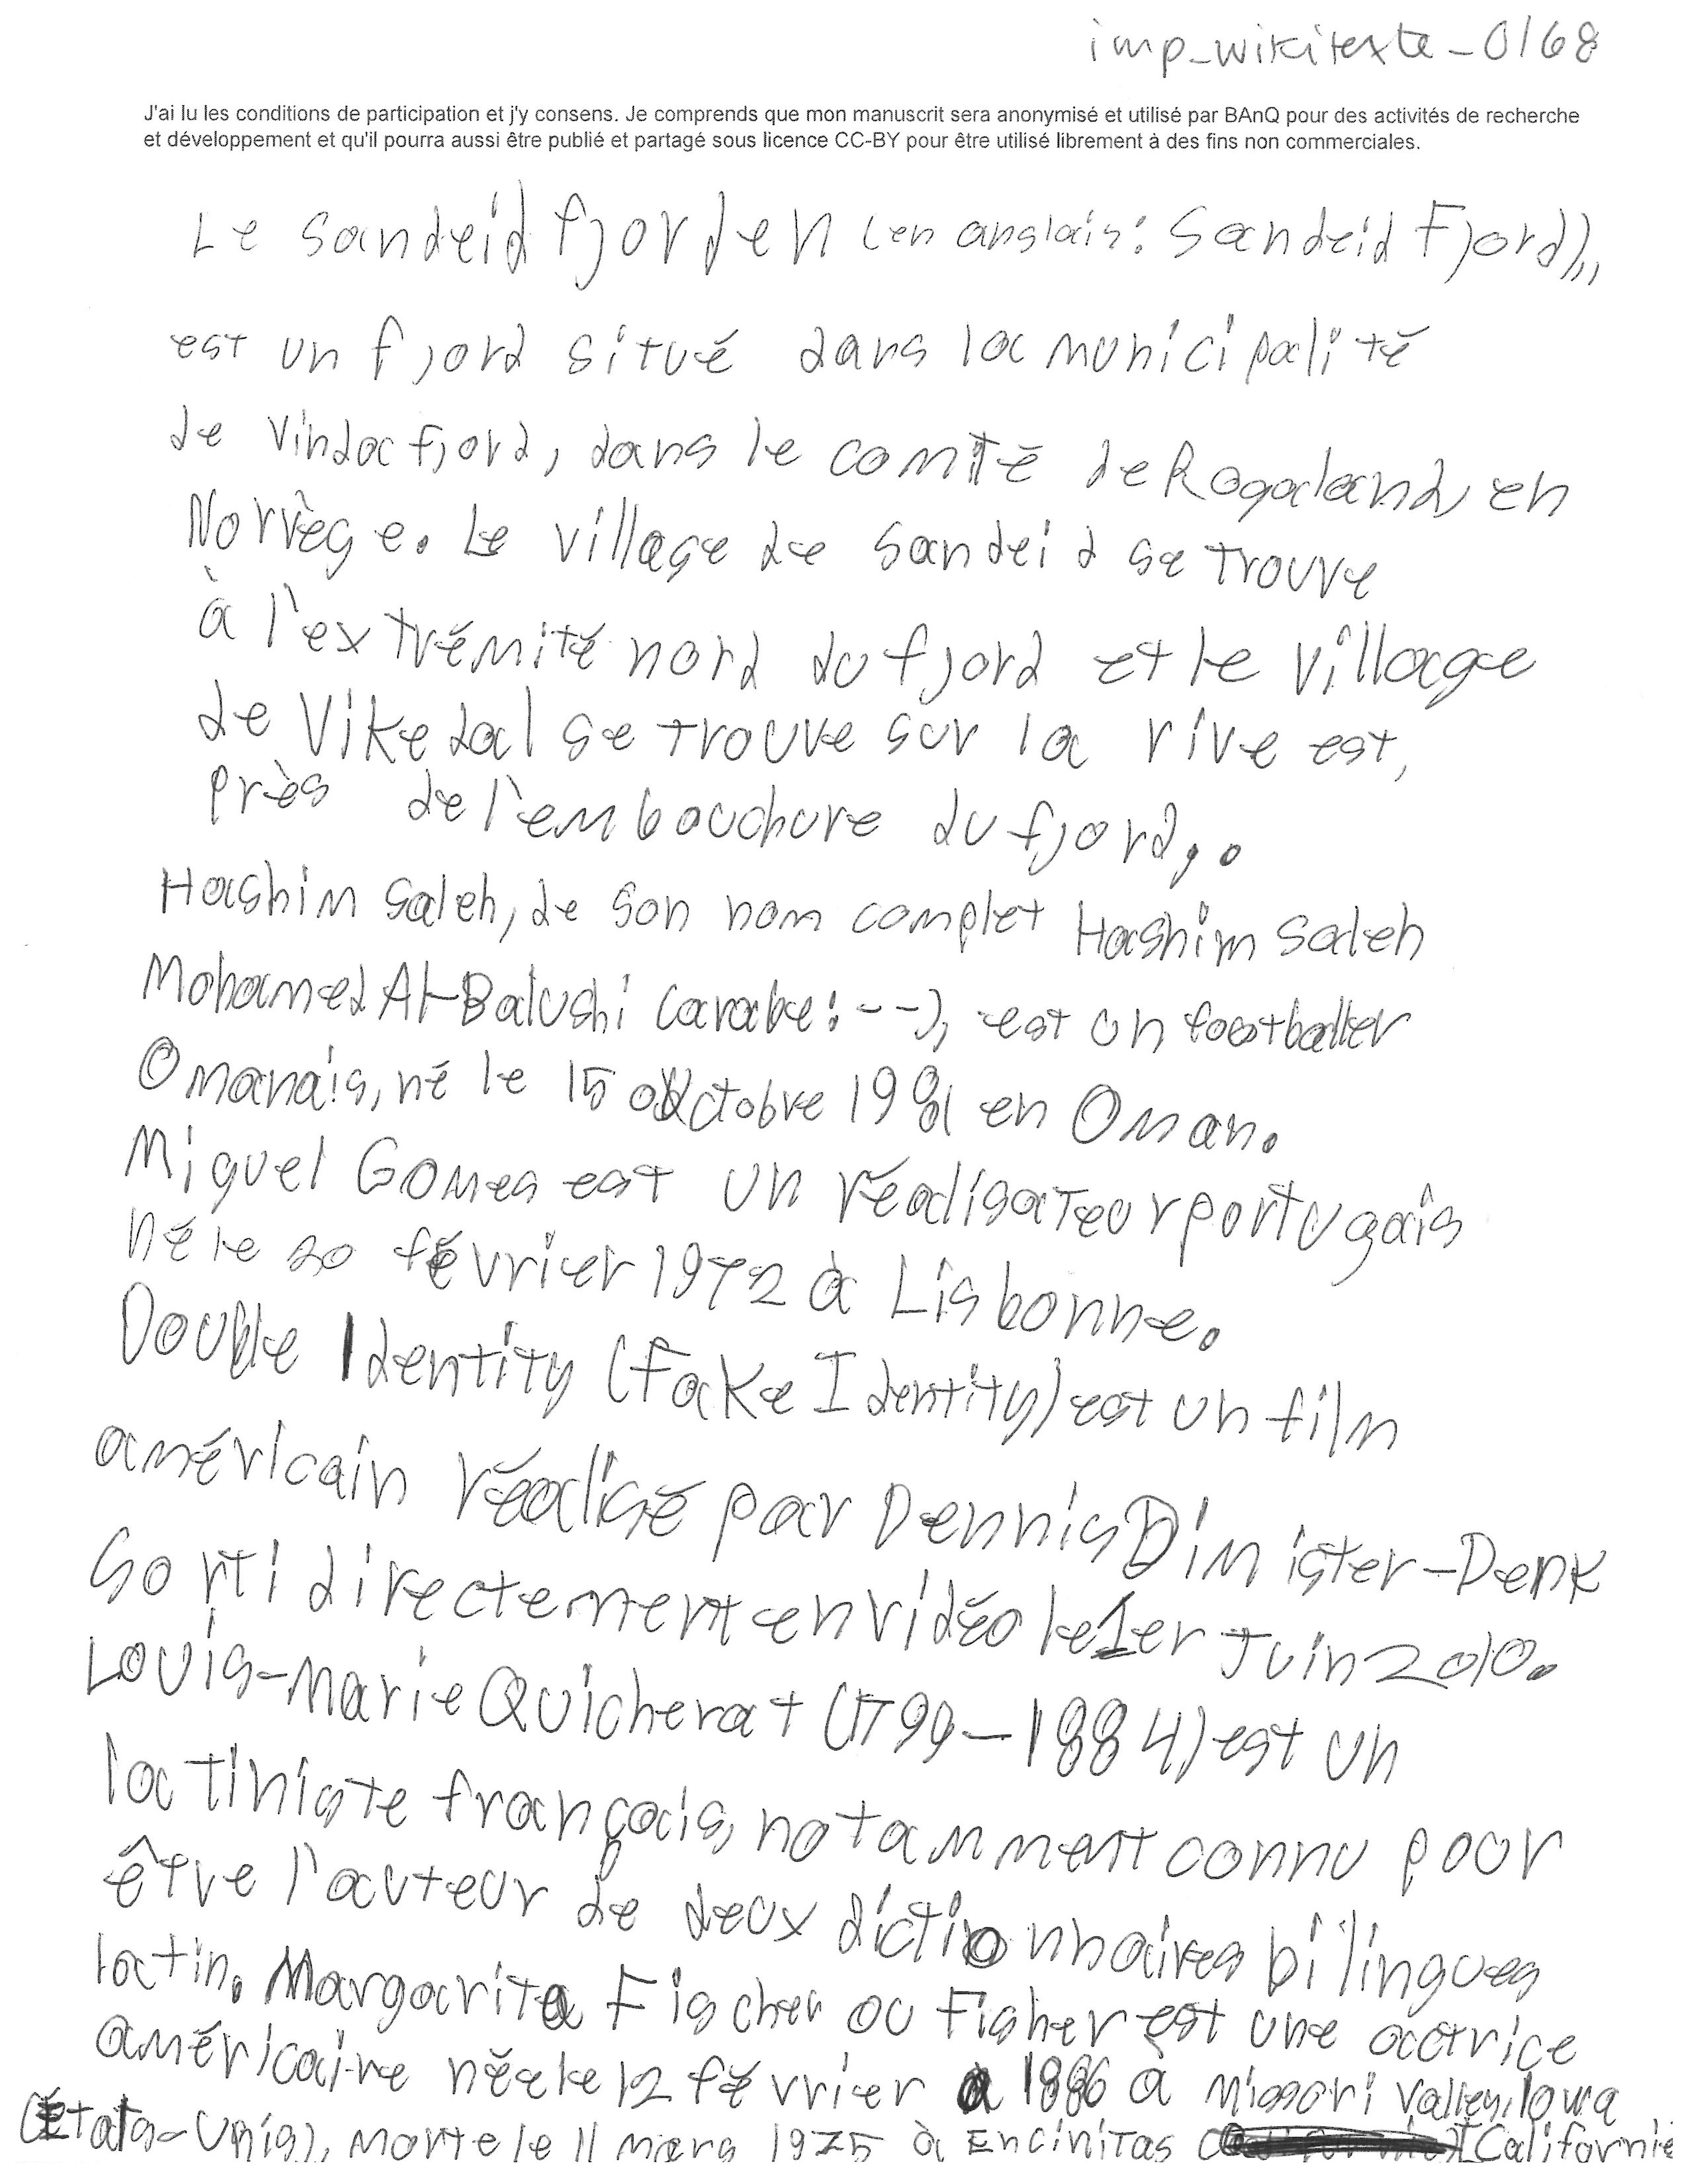 imp_wikitexte_0168
J'ai lu les conditions de participation et j'y consens. Je comprends que mon manuscrit sera anonymisé et utilisé par BAnQ pour des activités de recherche
et développement et qu'il pourra aussi être publié et partagé sous licence CC-BY pour être utilisé librement à des fins non commerciales.
Le Sandeidfjorden (en anglais: Sandeid Fjord),,
est un fjord situé dans la municipalité
de Vindafjord, dans le comté de Rogaland, en
Norvège. Le village de Sandeid se trouve
à l'extrémité nord du fjord et le village
de Vikedal se trouve sur la rive est,
près de l'embouchure du fjord,.
Hashim Saleh, de son nom complet Hashim Saleh
Mohamed Al-Balushi (arabe: --), est un footballer
Omanais, né le 15 octobre 1981 en Oman.
Miguel Gomes est un réalisateur portugais
né le 20 février 1972 à Lisbonne.
Double Identity (Fake Identity) est un film
américain réalisé par Dennis Dimister-Denk
Sorti directement en vidéo le 1er Juin 2010.
Louis-Marie Quicherat (1799-1884) est un
latiniste français, notamment connu pour
être l'auteur de deux dictionnaires bilingues
latin. Margarita Fischer ou Fisher est une actrice
américaine née le 12 février 1886 à Missori Valley, Iowa
(États-Unis), morte le 11 mars 1975 à Encinitas (Californie